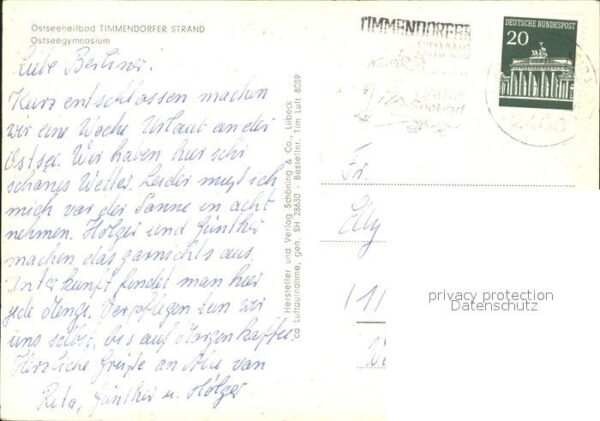 Ostseeheilbad TIMMENDORFER STRAND
Ostseegymnasium
Liebe Berliner!
Kurz entschlossen machen
wir eine Woche Urlaub an der
Ostsee. Wir haben hier sehr
schönes Wetter. Leider muß ich
mich vor der Sonne in acht
nehmen. Holger und Günther
machen das garnichts aus.
Unterkunft findet man hier
jede Menge. Verpflegen tun wir
uns selbst, bis auf Morgenkaffee.
Herzliche Grüße an Alle von
Reta, Günther u. Holger
Hersteller und Verlag Schöning & Co., Lübeck
ca Luftaufnahme, gen. SH 28630 - Bestellnr. Tim Luft 8089
TIMMENDORFER
Seebad
DEUTSCHE BUNDESPOST
20
2408
Fr.
Elly
111
privacy protection
Datenschutz